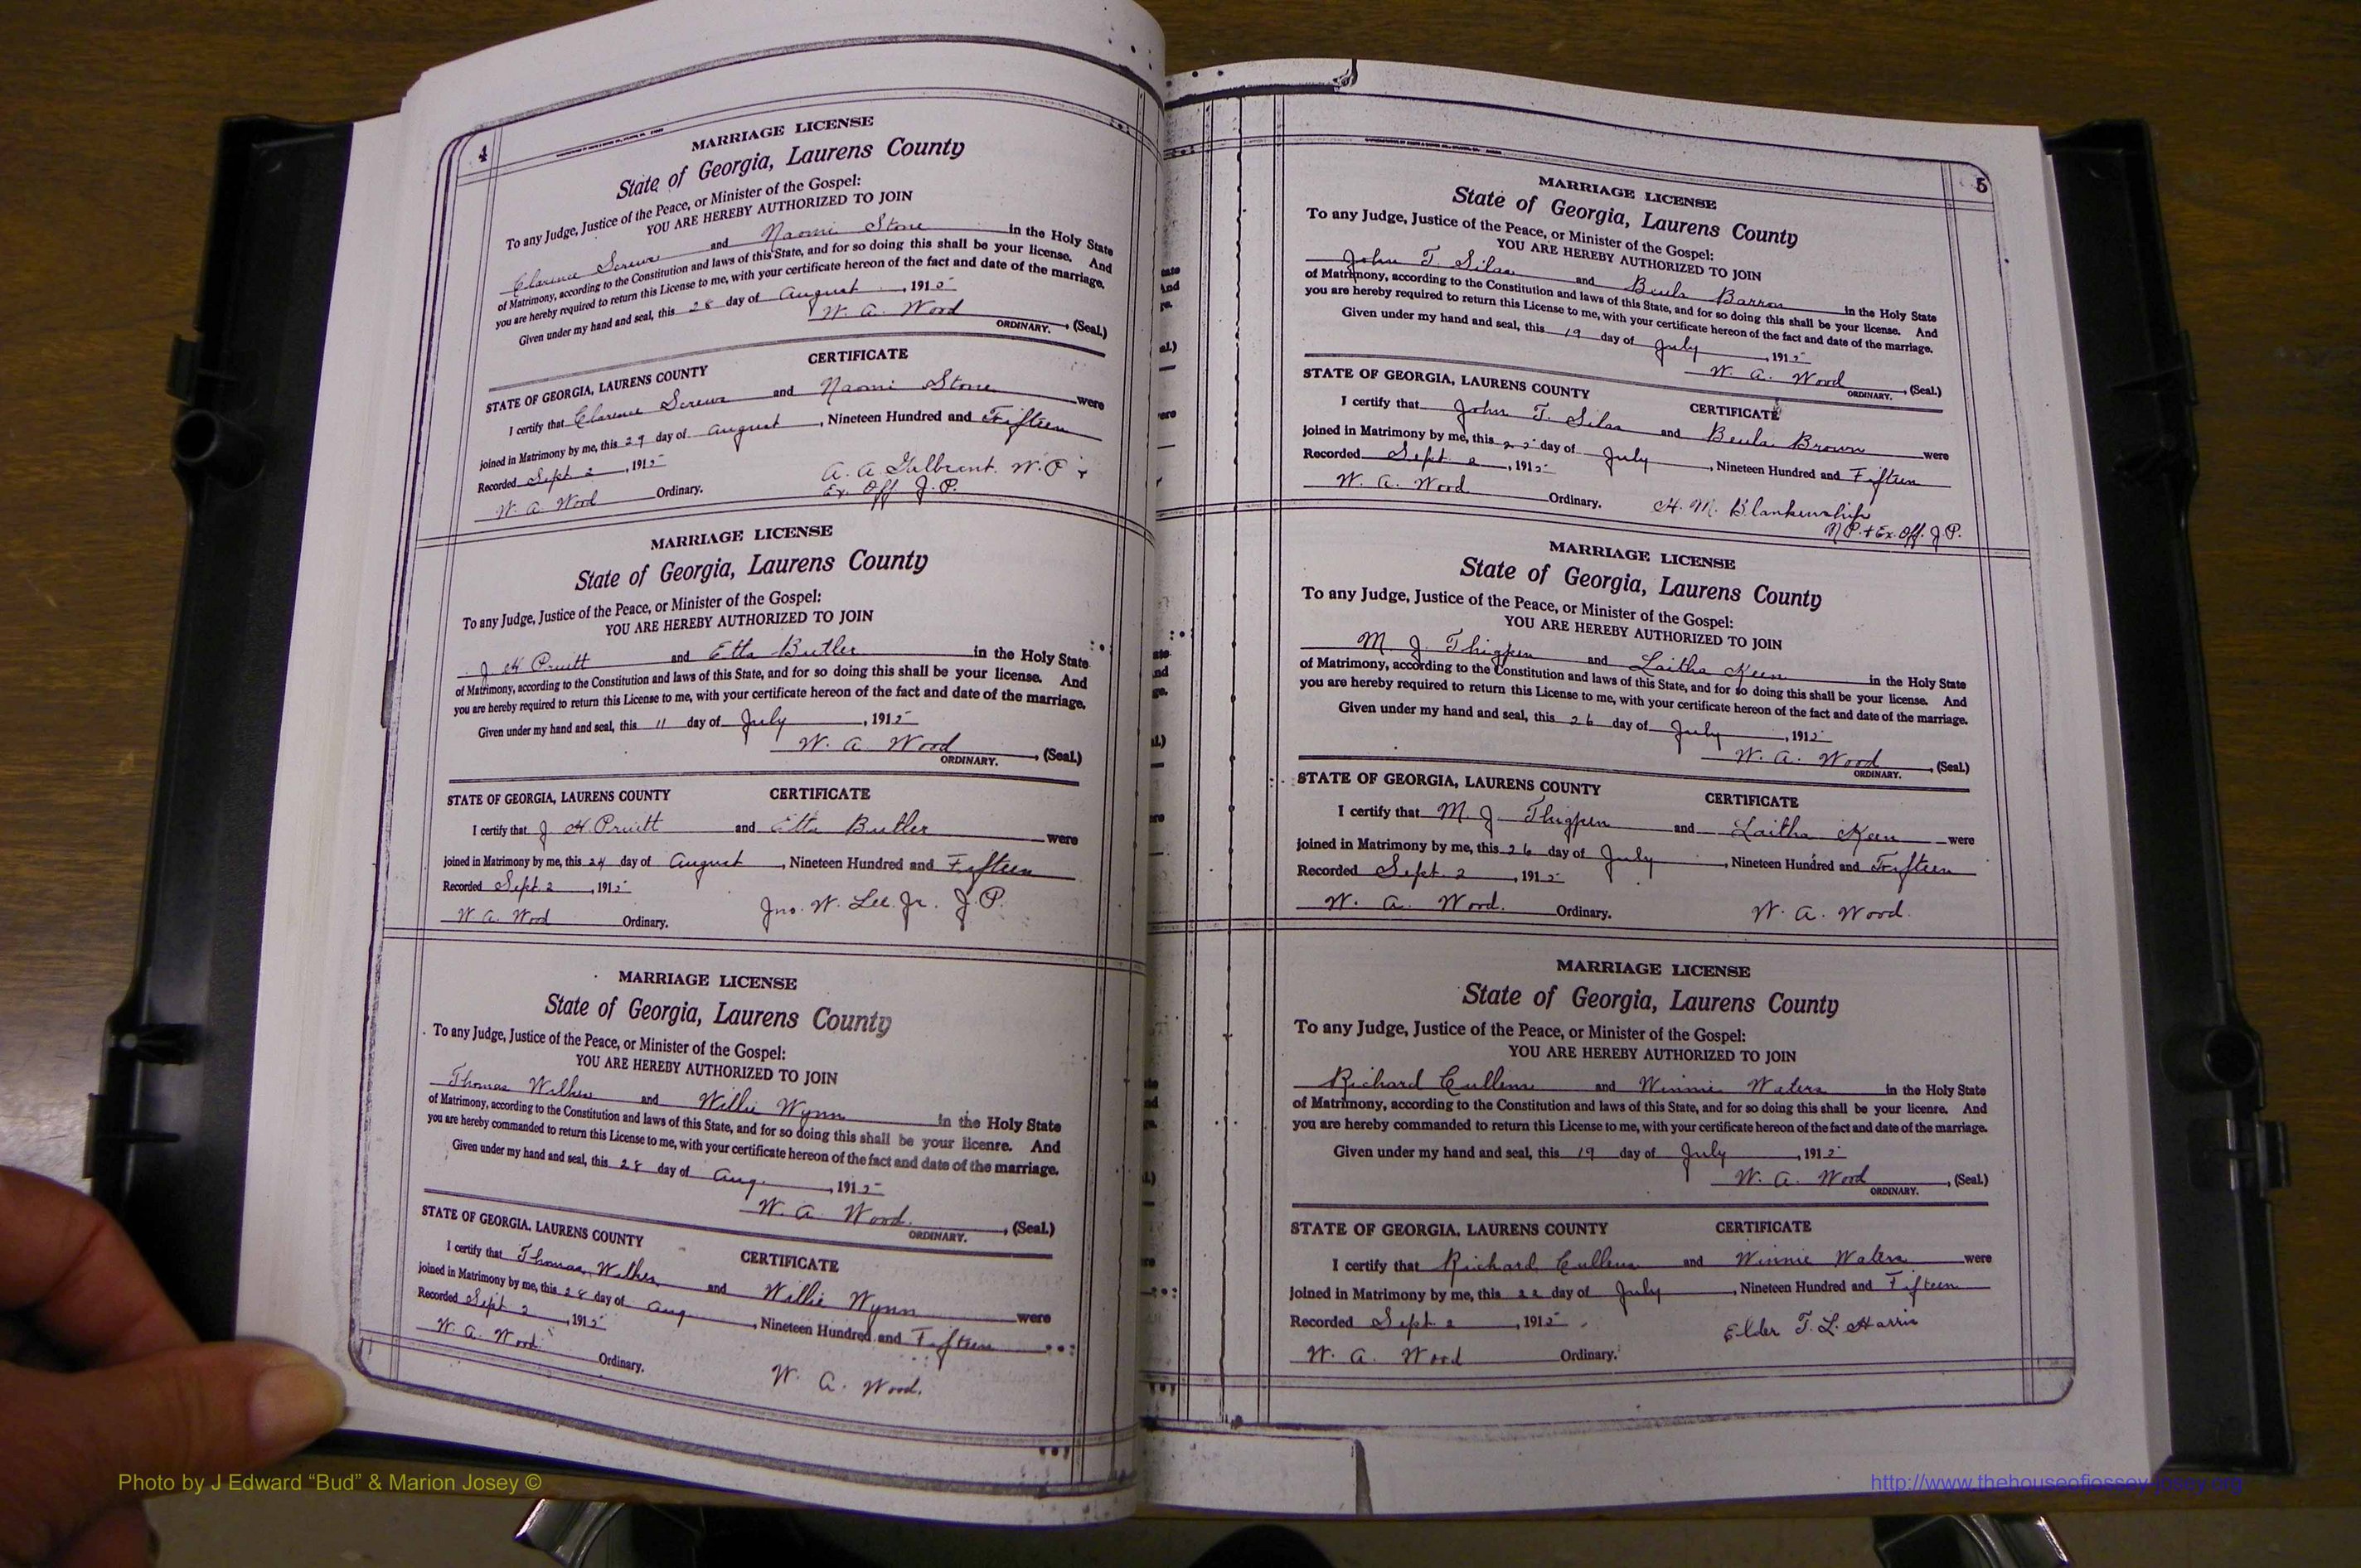 4
MARRIAGE LICENSE
State of Georgia, Laurens County
To any Judge, Justice of the Peace, or Minister of the Gospel:
YOU ARE HEREBY AUTHORIZED TO JOIN
Clarence Screws and Naomi Stone in the Holy State
of Matrimony, according to the Constitution and laws of this State, and for so doing this shall be your license. And
you are hereby required to return this License to me, with your certificate hereon of the fact and date of the marriage.
Given under my hand and seal, this 28 day of August, 1915
W. A. Wood, (Seal.)
ORDINARY.
CERTIFICATE
STATE OF GEORGIA, LAURENS COUNTY
I certify that Clarence Screws and Naomi Stone were
joined in Matrimony by me, this 29 day of August, Nineteen Hundred and Fifteen
Recorded Sept 2, 1915
A. A. W. P +
W. A. Wood Ordinary. Ex. Off J. P.
MARRIAGE LICENSE
State of Georgia, Laurens County
To any Judge, Justice of the Peace, or Minister of the Gospel:
YOU ARE HEREBY AUTHORIZED TO JOIN
J H Pruitt and Etta Butler in the Holy State
of Matrimony, according to the Constitution and laws of this State, and for so doing this shall be your license. And
you are hereby required to return this License to me, with your certificate hereon of the fact and date of the marriage.
Given under my hand and seal, this 11 day of July, 1915
W. A. Wood, (Seal.)
ORDINARY.
STATE OF GEORGIA, LAURENS COUNTY CERTIFICATE
I certify that J H. Pruitt and Etta Butler were
joined in Matrimony by me, this 24 day of August, Nineteen Hundred and Fifteen
Recorded Sept. 2, 1915
Jno. W. Lee. Jr. J. P.
W A. Wood Ordinary.
MARRIAGE LICENSE
State of Georgia, Laurens County
To any Judge, Justice of the Peace, or Minister of the Gospel:
YOU ARE HEREBY AUTHORIZED TO JOIN
Thomas and Willie Wynn in the Holy State
of Matrimony, according to the Constitution and laws of this State, and for so doing this shall be your licenre. And
you are hereby commanded to return this License to me, with your certificate hereon of the fact and date of the marriage.
Given under my hand and seal, this 28 day of Aug., 1915
W. A. Wood., (Seal.)
ORDINARY.
STATE OF GEORGIA, LAURENS COUNTY
CERTIFICATE
I certify that Thomas and Willie Wynn were
joined in Matrimony by me, this 28 day of Aug, Nineteen Hundred and Fifteen
Recorded Sept 2, 1915
W. A. Wood Ordinary.
W. A. Wood.
5
MARRIAGE LICENSE
State of Georgia, Laurens County
To any Judge, Justice of the Peace, or Minister of the Gospel:
YOU ARE HEREBY AUTHORIZED TO JOIN
John T. Silas and Beula Barron in the Holy State
of Matrimony, according to the Constitution and laws of this State, and for so doing this shall be your license. And
you are hereby required to return this License to me, with your certificate hereon of the fact and date of the marriage.
Given under my hand and seal, this 19 day of July, 1915
W. A. Wood, (Seal.)
ORDINARY.
STATE OF GEORGIA, LAURENS COUNTY
CERTIFICATE
I certify that John T. Silas and Beula Brown were
joined in Matrimony by me, this 25 day of July, Nineteen Hundred and Fifteen
Recorded Sept 2, 1915
W. A. Wood Ordinary. H. M. Blankenship
N P. + Ex. Off. J P.
MARRIAGE LICENSE
State of Georgia, Laurens County
To any Judge, Justice of the Peace, or Minister of the Gospel:
YOU ARE HEREBY AUTHORIZED TO JOIN
M. J. Thigpen and Laitha Keen in the Holy State
of Matrimony, according to the Constitution and laws of this State, and for so doing this shall be your license. And
you are hereby required to return this License to me, with your certificate hereon of the fact and date of the marriage.
Given under my hand and seal, this 26 day of July, 1915
W. A. Wood, (Seal.)
ORDINARY.
STATE OF GEORGIA, LAURENS COUNTY
CERTIFICATE
I certify that M. J. Thigpen and Laitha Keen were
joined in Matrimony by me, this 26 day of July, Nineteen Hundred and Fifteen
Recorded Sept. 2, 1915
W. A. Wood. Ordinary. W. A. Wood.
MARRIAGE LICENSE
State of Georgia, Laurens County
To any Judge, Justice of the Peace, or Minister of the Gospel:
YOU ARE HEREBY AUTHORIZED TO JOIN
Richard Cullens and Winnie Waters in the Holy State
of Matrimony, according to the Constitution and laws of this State, and for so doing this shall be your licenre. And
you are hereby commanded to return this License to me, with your certificate hereon of the fact and date of the marriage.
Given under my hand and seal, this 19 day of July, 1915
W. A. Wood, (Seal.)
ORDINARY.
STATE OF GEORGIA, LAURENS COUNTY CERTIFICATE
I certify that Richard Cullens and Winnie Waters were
joined in Matrimony by me, this 22 day of July, Nineteen Hundred and Fifteen
Recorded Sept. 2, 1915
Elder T. L. Harris
W. A. Wood Ordinary.
Photo by J Edward “Bud” & Marion Josey ©
http://www.thehouseofjossey-josey.org